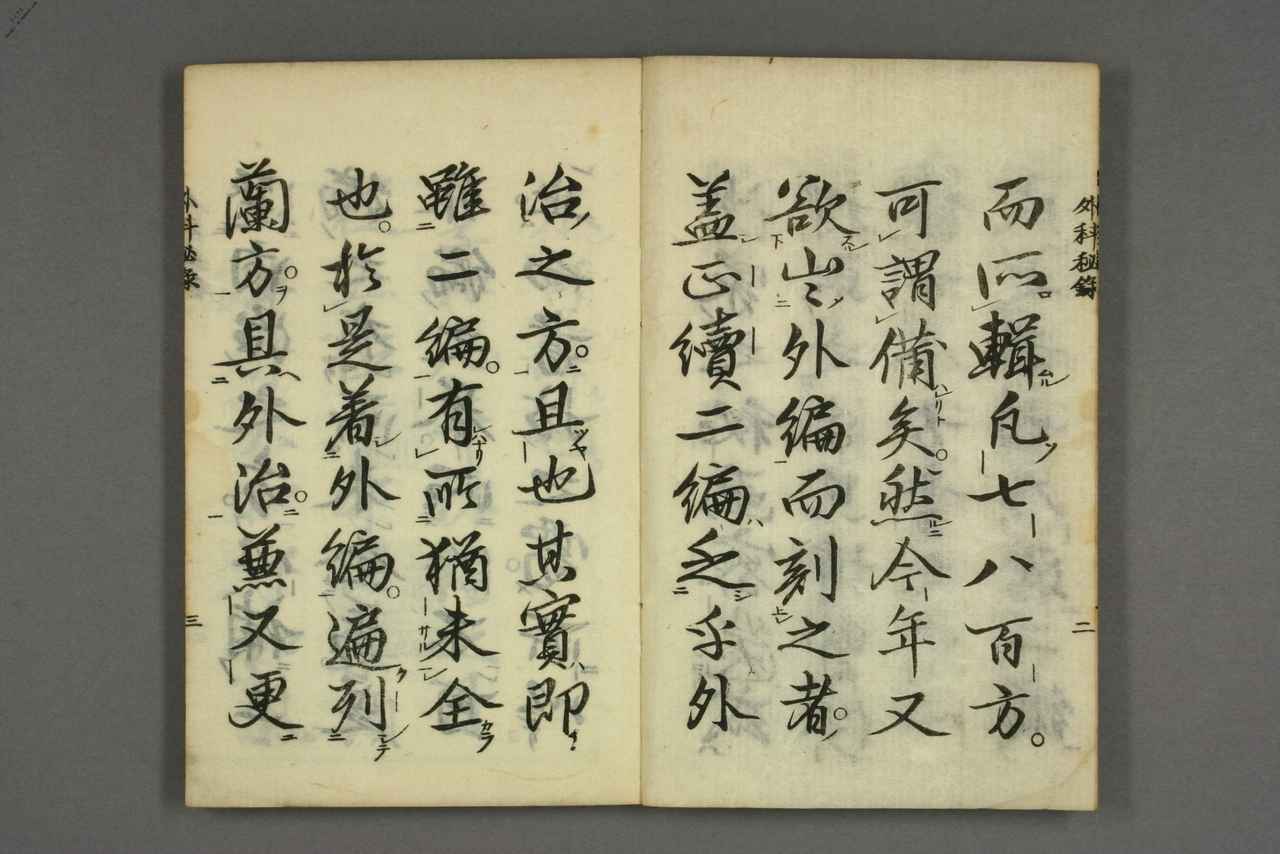 外科秘錄
二
而所輯凡七八百方。
可謂備矣。然今年又
欲出外編而刻之者。
蓋正續二編乏乎外
治之方。且也其實即
雖二編。有所猶未全
也。於是著外編。遍列
蘭方。具外治。兼又更
外科秘錄
三